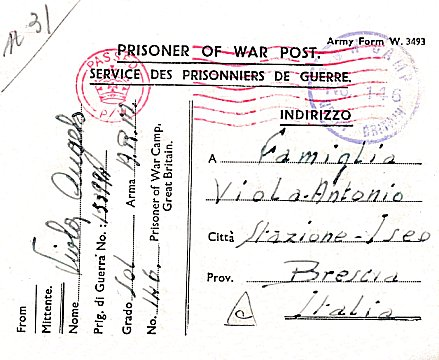 n 31
Army Form W. 3493
PRISONER OF WAR POST.
SERVICE DES PRISONNIERS DE GUERRE.
PASSED
P
CAMP
No. 146
BRITAIN
INDIRIZZO
A Famiglia
Viola-Antonio
Città Stazione-Iseo
Prov. Brescia
Italia
From
Mittente.
Nome Viola Angelo
Prig. di Guerra No.:
Grado Sol Arma
No. 146. Prisoner of War Camp,
Great Britain.